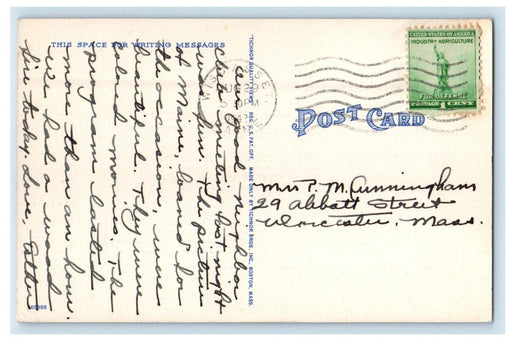 THIS SPACE FOR WRITING MESSAGES
Our Good Neighbor
Club meeting last night
was fine. The pictures
of Maine, loaned for
the occasion, were
beautiful. They were
colored movies. The
program lasted
more than an hour.
We had a wood
fire today. Love,
"TICHNOR QUALITY VIEWS," REG. U. S. PAT. OFF. MADE ONLY BY TICHNOR BROS., INC., BOSTON, MASS.
UNITED STATES OF AMERICA
INDUSTRY AGRICULTURE
FOR DEFENSE
POSTAGE 1 CENT
POST CARD
Mrs P. M. Cunningham
29 Abbott Street
Worcester, Mass.